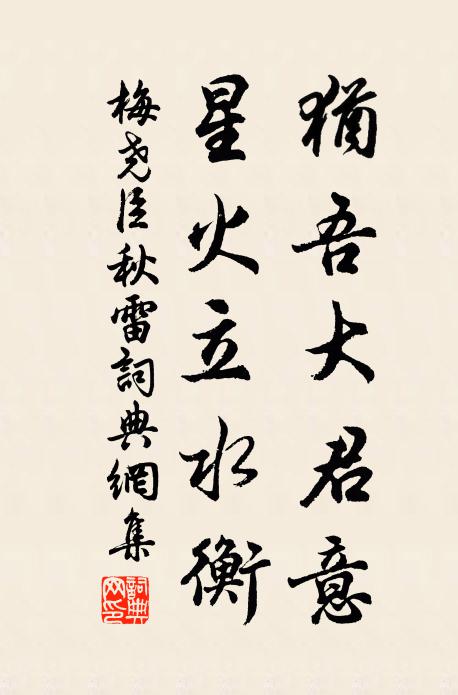 猶吾大君意
星火立水衡
梅堯臣秋雷詞典網集
詞典網印